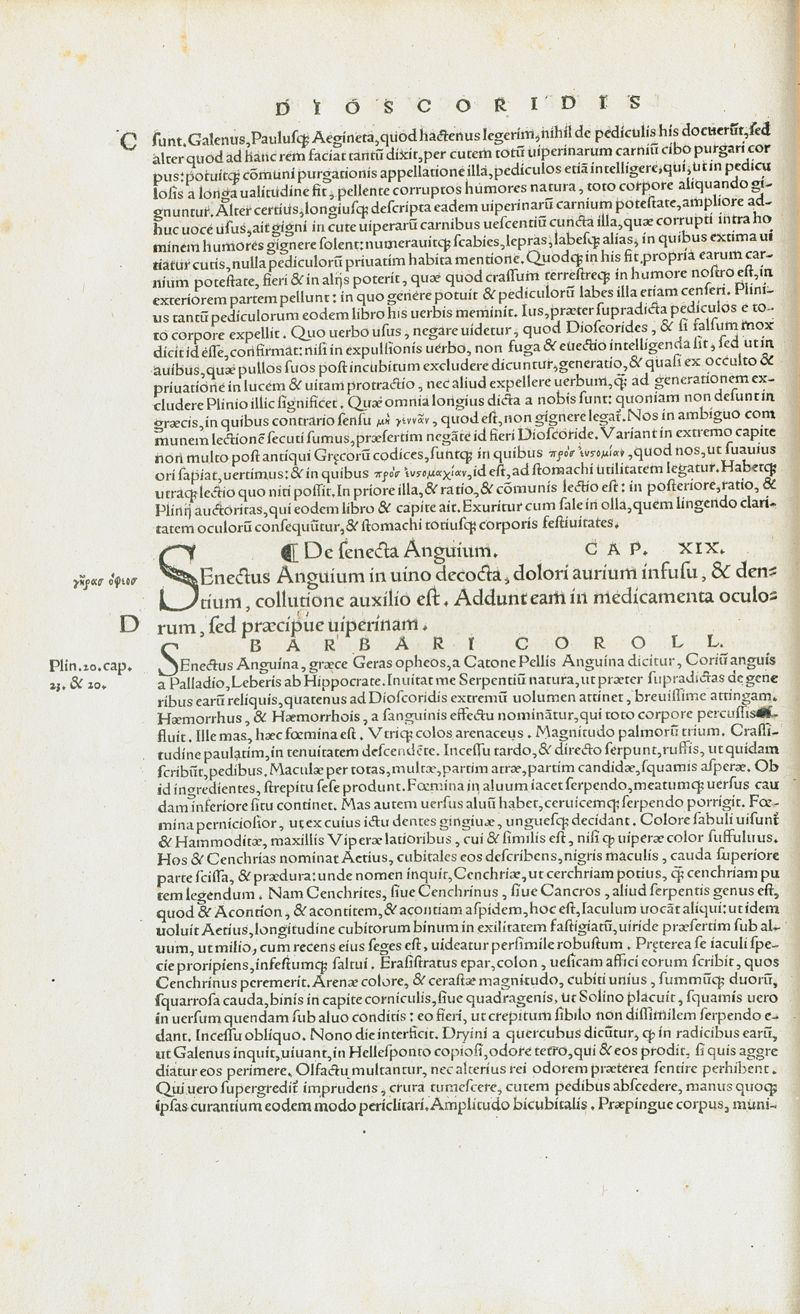 DIOSCORIDIS
C
ſunt. Galenus, Pauluſq; Aegineta, quod hactenus legerim, nihil de pediculis his docuerūt, ſed
alter quod ad hanc rem faciat tantū dixit, per cutem totū uiperinarum carniū cibo purgari cor
pus: potuitq; cōmuni purgationis appellatione illa, pediculos etiā intelligere, qui, ut in pedicu
loſis a longa ualitudine fit, pellente corruptos humores natura, toto corpore aliquando gi-
gnuntur. Alter certius, longiuſq; deſcripta eadem uiperinarū carnium poteſtate, ampliore ad-
huc uoce uſus, ait gigni in cute uiperarū carnibus ueſcentiū cuncta illa, quæ corrupti intra ho
minem humores gignere ſolent: numerauitq; ſcabies, lepras, labeſq; alias, in quibus extima ui
tiatur cutis, nulla pediculorū priuatim habita mentione. Quodq; in his fit, propria earum car-
nium poteſtate, fieri & in alijs poterit, quæ quod craſſum terreſtreq; in humore noſtro eſt, in
exteriorem partem pellunt: in quo genere potuit & pediculorū labes illa etiam cenſeri. Plini-
us tantū pediculorum eodem libro his uerbis meminit. Ius, præter ſupradicta pediculos e to-
to corpore expellit. Quo uerbo uſus, negare uidetur, quod Dioſcorides, & ſi falſum mox
dicit id eſſe, confirmat: niſi in expulſionis uerbo, non fuga & euectio intelligenda ſit, ſed ut in
auibus, quæ pullos ſuos poſt incubitum excludere dicuntur, generatio, & quaſi ex occulto &
priuatione in lucem & uitam protractio, nec aliud expellere uerbum, q̃; ad generationem ex-
cludere Plinio illic ſignificet. Quæ omnia longius dicta a nobis ſunt: quoniam non deſunt in
græcis, in quibus contrario ſenſu μὴ γεννᾶν, quod eſt, non gignere legat̃. Nos in ambiguo com
munem lectionē ſecuti ſumus, præſertim negāte id fieri Dioſcoride. Variant in extremo capite
non multo poſt antiqui Gręcorū codices, ſuntq; in quibus προσ ἐυτομίαν, quod nos, ut ſuauius
ori ſapiat, uertimus: & in quibus προσ ἐυστομαχίαν, id eſt, ad ſtomachi utilitatem legatur. Habetq;
utraq; lectio quo niti poſſit. In priore illa, & ratio, & cōmunis lectio eſt: in poſteriore, ratio, &
Plinij auctoritas, qui eodem libro & capite ait. Exuritur cum ſale in olla, quem lingendo clari-
tatem oculorū conſequūtur, & ſtomachi totiuſq; corporis feſtiuitates.
¶ De ſenecta Anguium. CAP. XIX.
γῆρασ ὄφιοσ
SEnectus Anguium in uino decocta, dolori aurium infuſu, & den-
tium, collutione auxilio eſt. Addunt eam in medicamenta oculo-
D
rum, ſed præcipue uiperinam.
BARBARI COROLL.
Plin. 20. cap.
23. & 20.
SEnectus Anguina, græce Geras opheos, a Catone Pellis Anguina dicitur, Coriū anguis
a Palladio, Leberis ab Hippocrate. Inuitat me Serpentiū natura, ut præter ſupradictas de gene
ribus earū reliquis, quatenus ad Dioſcoridis extremū uolumen attinet, breuiſſime attingam.
Hæmorrhus, & Hæmorrhois, a ſanguinis effectu nominātur, qui toto corpore percuſſis
fluit. Ille mas, hæc fœmina eſt. Vtriq; colos arenaceus. Magnitudo palmorū trium. Craſſi-
tudine paulatim, in tenuitatem deſcendēte. Inceſſu tardo, & directo ſerpunt, ruffis, ut quidam
ſcribūt, pedibus. Maculæ per totas, multæ, partim atræ, partim candidæ, ſquamis aſperæ. Ob
id ingredientes, ſtrepitu ſeſe produnt. Fœmina in aluum iacet ſerpendo, meatumq; uerſus cau
dam inferiore ſitu continet. Mas autem uerſus aluū habet, ceruicemq; ſerpendo porrigit. Fœ-
mina pernicioſior, ut ex cuius ictu dentes gingiuæ, ungueſq; decidant. Colore ſabuli uiſunt̃
& Hammoditæ, maxillis Viperæ latioribus, cui & ſimilis eſt, niſi ꝙ uiperæ color ſuffuluus.
Hos & Cenchrias nominat Aetius, cubitales eos deſcribens, nigris maculis, cauda ſuperiore
parte ſciſſa, & prædura: unde nomen inquit, Cenchriæ, ut cerchriam potius, q̃; cenchriam pu
tem legendum. Nam Cenchrites, ſiue Cenchrinus, ſiue Cancros, aliud ſerpentis genus eſt,
quod & Acontion, & acontitem, & acontiam aſpidem, hoc eſt, Iaculum uocāt aliqui: ut idem
uoluit Aetius, longitudine cubitorum binum in exilitatem faſtigiatū, uiride præſertim ſub al-
uum, ut milio, cum recens eius ſeges eſt, uideatur perſimile robuſtum. Pręterea ſe iaculi ſpe-
cie proripiens, infeſtumq; ſaltui. Eraſiſtratus epar, colon, ueſicam affici eorum ſcribit, quos
Cenchrinus peremerit. Arenæ colore, & ceraſtæ magnitudo, cubiti unius, ſummūq; duorū,
ſquarroſa cauda, binis in capite corniculis, ſiue quadragenis, ut Solino placuit, ſquamis uero
in uerſum quendam ſub aluo conditis: eo fieri, ut crepitum ſibilo non diſſimilem ſerpendo e-
dant. Inceſſu obliquo. Nono die interficit. Dryini a quercubus dicūtur, ꝙ in radicibus earū,
ut Galenus inquit, uiuant, in Helleſponto copioſi, odore tetro, qui & eos prodit, ſi quis aggre
diatur eos perimere. Olfactu multantur, nec alterius rei odorem præterea ſentire perhibent.
Qui uero ſupergredit̃ imprudens, crura tumeſcere, cutem pedibus abſcedere, manus quoq;
ipſas curantium eodem modo periclitari. Amplitudo bicubitalis. Præpingue corpus, muni-